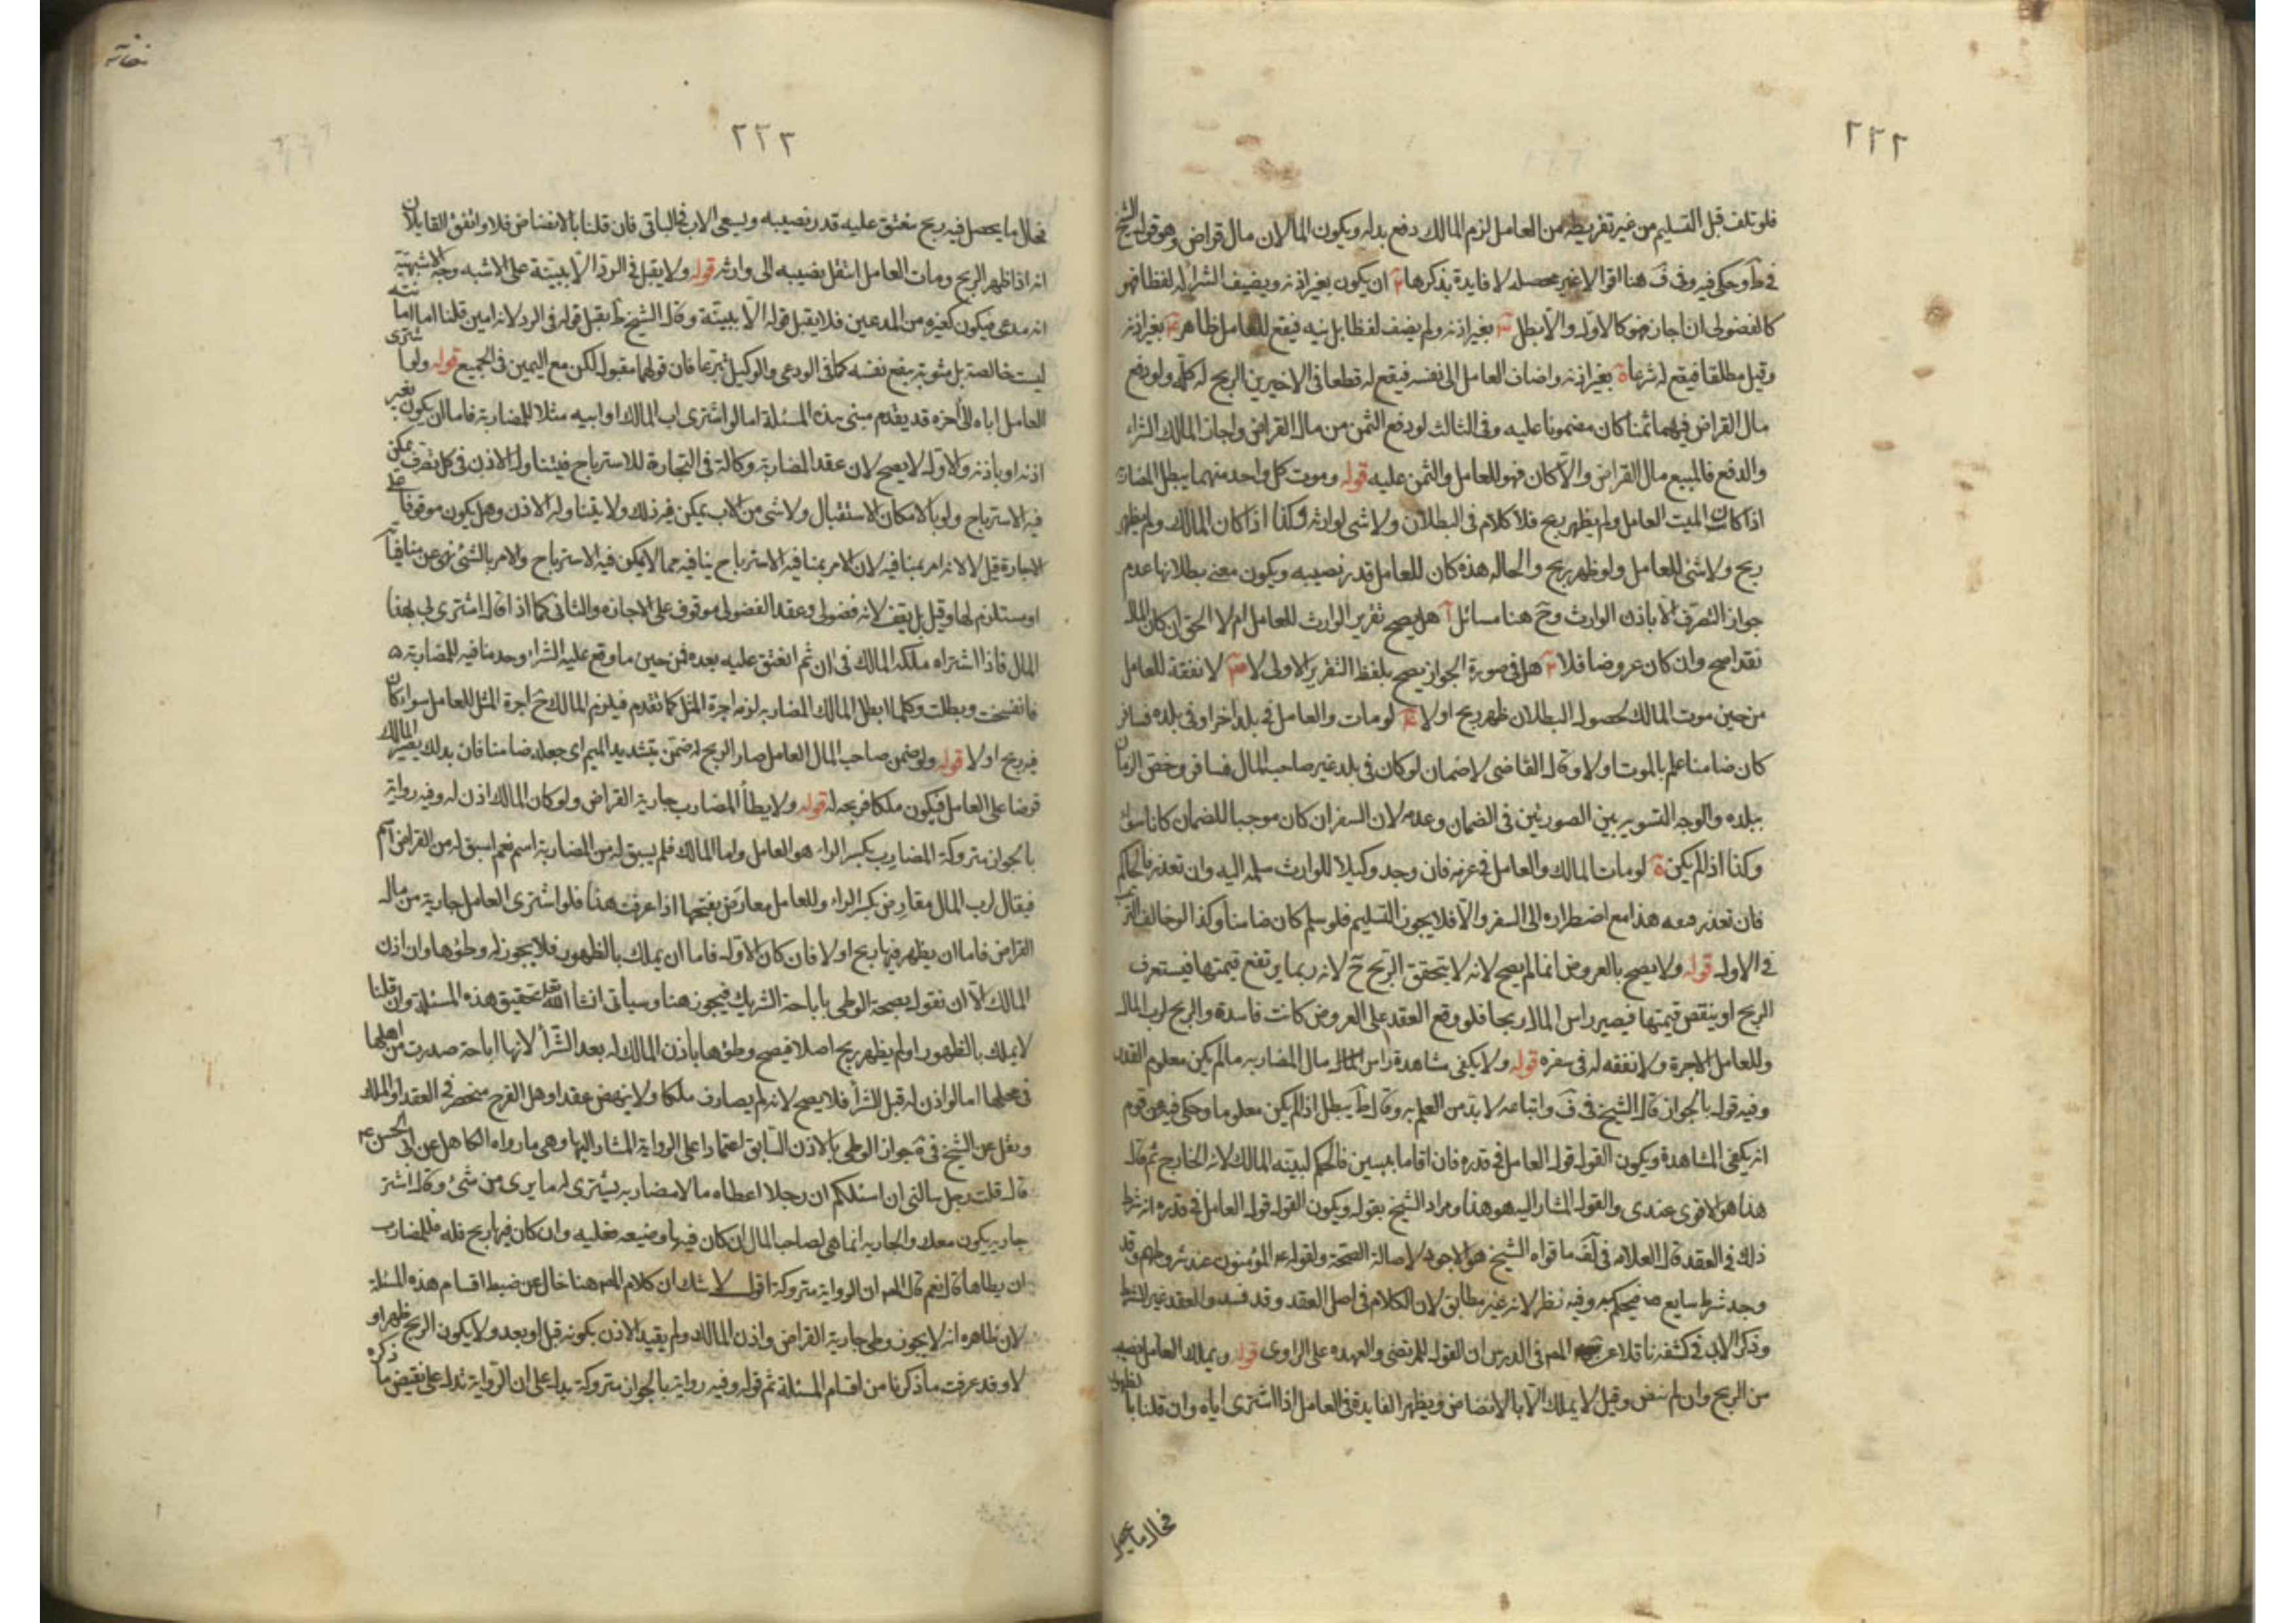 ٢٢٢
فلو تلف قبل التسليم من غير تفريط من العامل لزم المالك دفع بدله ويكون المالان مال قراض وهو قول الشيخ
في ط وحكى فيه وفي ف هنا اقوالا غير محصله لا فايدة بذكرها ٢ ان يكون بغير اذنه ويضيف الشراء له لفظا فهو
كالفضولي ان اجاز فهو كالاول والا بطل ٣ بغير اذنه ولم يضف لفظا بل نيه فيقع للعامل ظاهر ٤ بغير اذنه
وقيل مطلقا فيقع له شرعا ة بغير اذنه واضاف العامل الى نفسه فيقع له قطعا في الاخيرين الربح له كله ولو دفع
مال القراض فيهما ثمنا كان مضمونا عليه وفي الثالث لو دفع الثمن من مال القراض واجاز المالك الشراء
والدفع فالمبيع مال القراض والا كان فهو للعامل والثمن عليه قوله وموت كل واحد منهما يبطل المضاربة
اذا كان الميت العامل ولم يظهر ربح فلا كلام في البطلان ولا شي لوارثه وكذا اذا كان المالك ولم يظهر
ربح ولا شئ للعامل ولو ظهر ربح والحاله هذه كان للعامل قدر نصيبه ويكون معنى بطلانها عدم
جواز التصرف الا باذن الوارث وح هنا مسائل آ هل يصح تقرير الوارث للعامل ام لا الحق ان كان المال
نقدا صح وان كان عروضا فلا ٢ هل في صورة الجواز يصح بلفظ التقرير الاولى لا ٣ لا نفقة للعامل
من حين موت المالك لحصول البطلان ظهر ربح اولا ٤ لو مات والعامل في بلد اخر او في بلده فسافر
كان ضامنا علم بالموت اولا وقال القاضي لا ضمان لو كان في بلد غير صاحب المال فسافر وخص الضمان
ببلده والوجه التسوية بين الصورتين في الضمان وعدمه لان السفر ان كان موجبا للضمان كانا سواء
وكذا اذا لم يكن ة لو مات المالك والعامل في غربه فان وجد وكيلا للوارث سلمه اليه وان تعذر فالحاكم
فان تعذر فمعه هذا مع اضطراره الى السفر والا فلا يجوز التسليم فلو سلم كان ضامنا وكذا لو خالف الترتيب
في الاول قوله ولا يصح بالعروض انما لم يصح لانه لا يتحقق الربح ح لانه ربما يرتفع قيمتها فيستغرق
الربح او ينقص قيمتها فيصير راس المال ربحا فلو وقع العقد على العروض كانت فاسدة والربح لرب المال
وللعامل الاجرة ولا نفقه له في سفره قوله ولا يكفي مشاهدة راس المال مال المضاربه ما لم يكن معلوم القدر
وفيه قول بالجواز قال الشيخ في ف واتباعه لا بد من العلم به وقال ط يبطل اذا لم يكن معلوما وحكى فيه عن قوم
انه يكفي المشاهدة ويكون القول قول العامل في قدره فان اقاما بينتين فالحكم لبينه المالك لانه الخارج ثم قال
هذا هو الاقوى عندي والقول المشار اليه هو هذا ومراد الشيخ بقوله ويكون القول قول العامل في قدره انه شرط
ذلك في العقد قال العلامه في لف ما قواه الشيخ هو الاجود لاصالة الصحة ولقوله ع المؤمنون عند شروطهم وقد
وجد شرط سايغ فيحكم به وفيه نظر لانه غير مطابق لان الكلام في اصل العقد وقد فسد والعقد غير الشرط
وذكر الابي في كشفه ناقلا عن المص في الدرس ان القول للمرتضى والعهده على الراوى قوله ويملك العامل نصيبه
من الربح وان لم ينض وقيل لا يملك الا بالانضاض ويظهر الفايدة في العامل اذا اشترى اباه وان قلنا بالظهور
فحال ما يحصل
٢٢٣
فحال ما يحصل فيه ربح ينعتق عليه قدر نصيبه ويسعى الاب في الباقي فان قلنا بالانضاض فلا واتفق القايلان
انه اذا ظهر الربح ومات العامل انتقل نصيبه الى وارثه قوله ولا يقبل في الرد الا ببينة على الاشبه وجه الاشبهية
انه مدعى فيكون كغيره من المدعين فلا يقبل قوله الا ببينة وقال الشيخ ط يقبل قوله في الرد لانه امين قلنا امانته
ليست خالصة بل مشوبة بنفع نفسه كما في الودعي والوكيل تبرعا فان قولهما مقبول لكن مع اليمين في الجميع قوله ولو اشترى
العامل اباه الى اخره قد يقدم مبنى هذه المسئلة اما لو اشترى اب المالك او ابنه مثلا للمضاربة فاما ان يكون بغير
اذنه او باذنه والاول لا يصح لان عقد المضاربة وكالة في التجارة للاسترباح فيتناول الاذن في كل تصرف يمكن
فيه الاسترباح ولو بالامكان الاستقبال ولا شي من الاب يمكن فيه ذلك ولا يتناوله الاذن وهل يكون موقوفا على
الاجارة قيل لا لانه امر بمنافيه لان الامر بمنافيه الاسترباح ينافيه حما لا يمكن فيه الاسترباح والامر بالشئ نهى عن منافياته
او مستلزم لها وقيل بل يقف لانه فضولي وعقد الفضولي موقوف على الاجازة والثاني كما اذا قال اشترى لي بهذا
المال فاذا اشتراه ملكه المالك في ان ثم انعتق عليه بعده فمن حين ما وقع عليه الشراء وجد منافيه للمضاربة
فانفسخت وبطلت وكلما ابطل المالك المضاربه لزمه اجرة المثل كما تقدم فيلزم المالك ح اجرة المثل للعامل سواء كان
فيه ربح اولا قوله ولو ضمن صاحب المال العامل صار الربح له ضمن بتشديد الميم اى جعله ضامنا فان بذلك يصير المال
قرضا على العامل فيكون ملكا فربحه له قوله ولا يطأ المضارب جارية القراض ولو كان المالك اذن له وفيه رواية
بالجواز متروكة المضارب بكسر الراء هو العامل واما المالك فلم يسبق له من المضاربة اسم نعم اسبق له من القراض اسم
فيقال لرب المال مقارض بكسر الراء وللعامل مقارض بفتحها اذا عرفت هذا فلو اشترى العامل جارية من مال
القراض فاما ان يظهر فيها ربح اولا فان كان الاول فاما ان يملك بالظهور فلا يجوز له وطؤها وان اذن
المالك الا ان نقول بصحة الوطى باباحة الشريك فيجوز هنا وسيأتي انشا الله تعالى تحقيق هذه المسئلة وان قلنا
لا يملك بالظهور او لم يظهر ربح اصلا فيصح وطؤها باذن المالك له بعد الشرأ لانها اباحة صدرت من اهلها
في محلها اما لو اذن له قبل الشرأ فلا يصح لانه لم يصادف ملكا ولا ينهض عقدا وهل الفرج منحصر في العقد او الملك
ونقل عن الشيخ في جواز الوطى بالاذن السابق اعتمادا على الرواية المشار اليها وهي ما رواه الكاهلى عن ابى الحسن ع
قال قلت رجل سالني ان اسئلكم ان رجلا اعطاه مالا مضاربه يشترى له ما يرى من شئ وقال اشتر
جاريه يكون معك والجاريه انما هي لصاحب المال ان كان فيها وضيعه فعليه وان كان فيها ربح فله فللمضارب
ان يطاها قال نعم قال المص ان الرواية متروكة اقول لا شك ان كلام المص هنا خال عن ضبط اقسام هذه المسئلة
لان ظاهره انه لا يجوز وطى جارية القراض واذن المالك ولم يقيد الاذن بكونه قبل او بعد ولا يكون الربح ظهر او
لا وقد عرفت ما ذكرنا من اقسام المسئلة ثم قوله وفيه رواية بالجواز متروكة يدل على ان الرواية تدل على نقيض ما ذكره